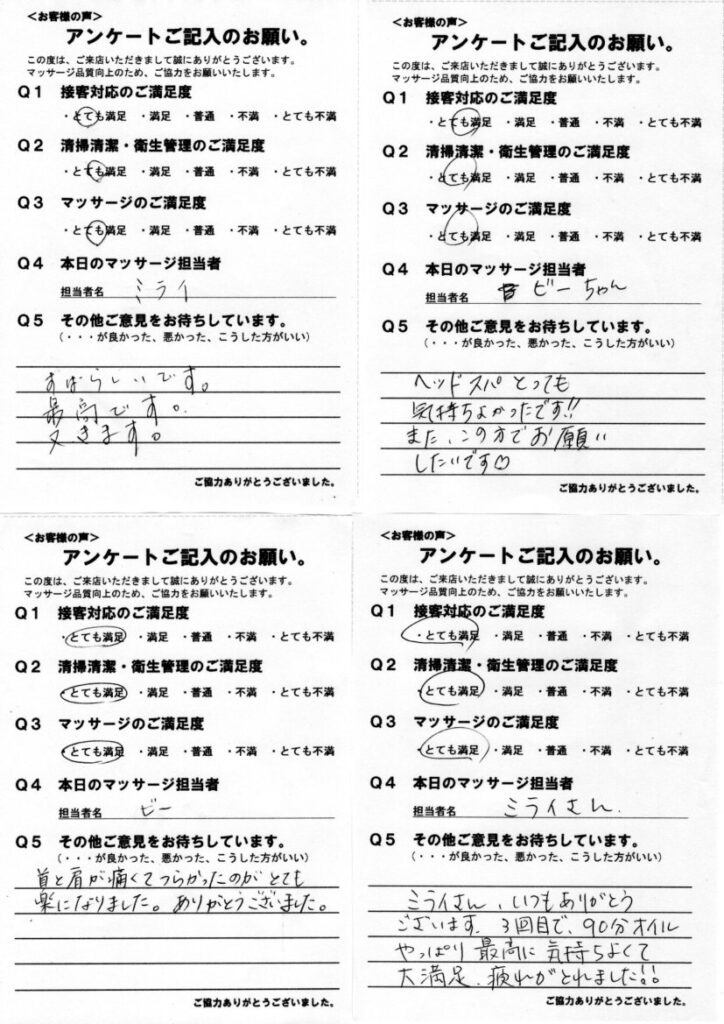 ＜お客様の声＞
アンケートご記入のお願い。
この度は、ご来店いただきまして誠にありがとうございます。
マッサージ品質向上のため、ご協力をお願いいたします。
Q1 接客対応のご満足度
・とても満足 ・満足 ・普通 ・不満 ・とても不満
Q2 清掃清潔・衛生管理のご満足度
・とても満足 ・満足 ・普通 ・不満 ・とても不満
Q3 マッサージのご満足度
・とても満足 ・満足 ・普通 ・不満 ・とても不満
Q4 本日のマッサージ担当者
担当者名 ミライ
Q5 その他ご意見をお待ちしています。
（・・・が良かった、悪かった、こうした方がいい）
すばらしいです。
最高です。
又きます。
ご協力ありがとうございました。
＜お客様の声＞
アンケートご記入のお願い。
この度は、ご来店いただきまして誠にありがとうございます。
マッサージ品質向上のため、ご協力をお願いいたします。
Q1 接客対応のご満足度
・とても満足 ・満足 ・普通 ・不満 ・とても不満
Q2 清掃清潔・衛生管理のご満足度
・とても満足 ・満足 ・普通 ・不満 ・とても不満
Q3 マッサージのご満足度
・とても満足 ・満足 ・普通 ・不満 ・とても不満
Q4 本日のマッサージ担当者
担当者名 ビーちゃん
Q5 その他ご意見をお待ちしています。
（・・・が良かった、悪かった、こうした方がいい）
ヘッドスパとっても
気持ちよかったです!!
また、この方でお願い
したいです♡
ご協力ありがとうございました。
＜お客様の声＞
アンケートご記入のお願い。
この度は、ご来店いただきまして誠にありがとうございます。
マッサージ品質向上のため、ご協力をお願いいたします。
Q1 接客対応のご満足度
・とても満足 ・満足 ・普通 ・不満 ・とても不満
Q2 清掃清潔・衛生管理のご満足度
・とても満足 ・満足 ・普通 ・不満 ・とても不満
Q3 マッサージのご満足度
・とても満足 ・満足 ・普通 ・不満 ・とても不満
Q4 本日のマッサージ担当者
担当者名 ビー
Q5 その他ご意見をお待ちしています。
（・・・が良かった、悪かった、こうした方がいい）
首と肩が痛くてつらかったのがとても
楽になりました。ありがとうございました。
ご協力ありがとうございました。
＜お客様の声＞
アンケートご記入のお願い。
この度は、ご来店いただきまして誠にありがとうございます。
マッサージ品質向上のため、ご協力をお願いいたします。
Q1 接客対応のご満足度
・とても満足 ・満足 ・普通 ・不満 ・とても不満
Q2 清掃清潔・衛生管理のご満足度
・とても満足 ・満足 ・普通 ・不満 ・とても不満
Q3 マッサージのご満足度
・とても満足 ・満足 ・普通 ・不満 ・とても不満
Q4 本日のマッサージ担当者
担当者名 ミライさん.
Q5 その他ご意見をお待ちしています。
（・・・が良かった、悪かった、こうした方がいい）
ミライさん、いつもありがとう
ございます. 3回目で、90分オイル
やっぱり最高に気持ちよくて
大満足. 疲れがとれました!!
ご協力ありがとうございました。